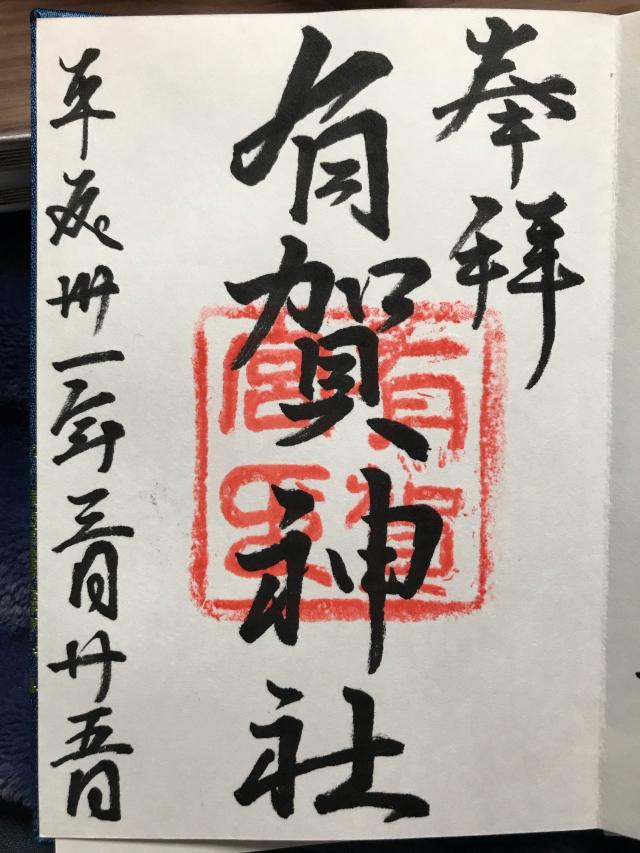 奉拝
有賀神社
平成卅一年三月廿五日
有賀
宮印